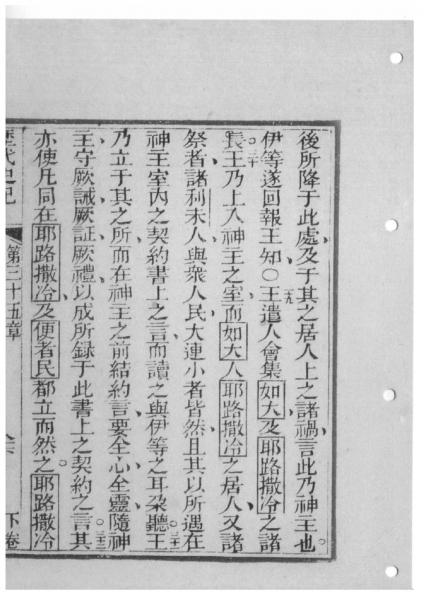 後所降于此處及于其之居人上之諸禍言此乃神王也
伊等遂回報王知○王遣人會集如大及耶路撒冷之諸
長王乃上入神王之室而如大人耶路撒冷之居人又諸
祭者諸利未人與衆人民大連小者皆然且其以所遇在
神王室內之契約書上之言而讀之與伊等之耳朶聽王
乃立于其之所而在神王之前結約言要全心全靈隨神
王守厥誡厥証厥禮以成所録于此書上之契約之言其
亦使凡同在耶路撒冷及便者民都立而然之耶路撒冷
歷代史記 第三十五章 下卷